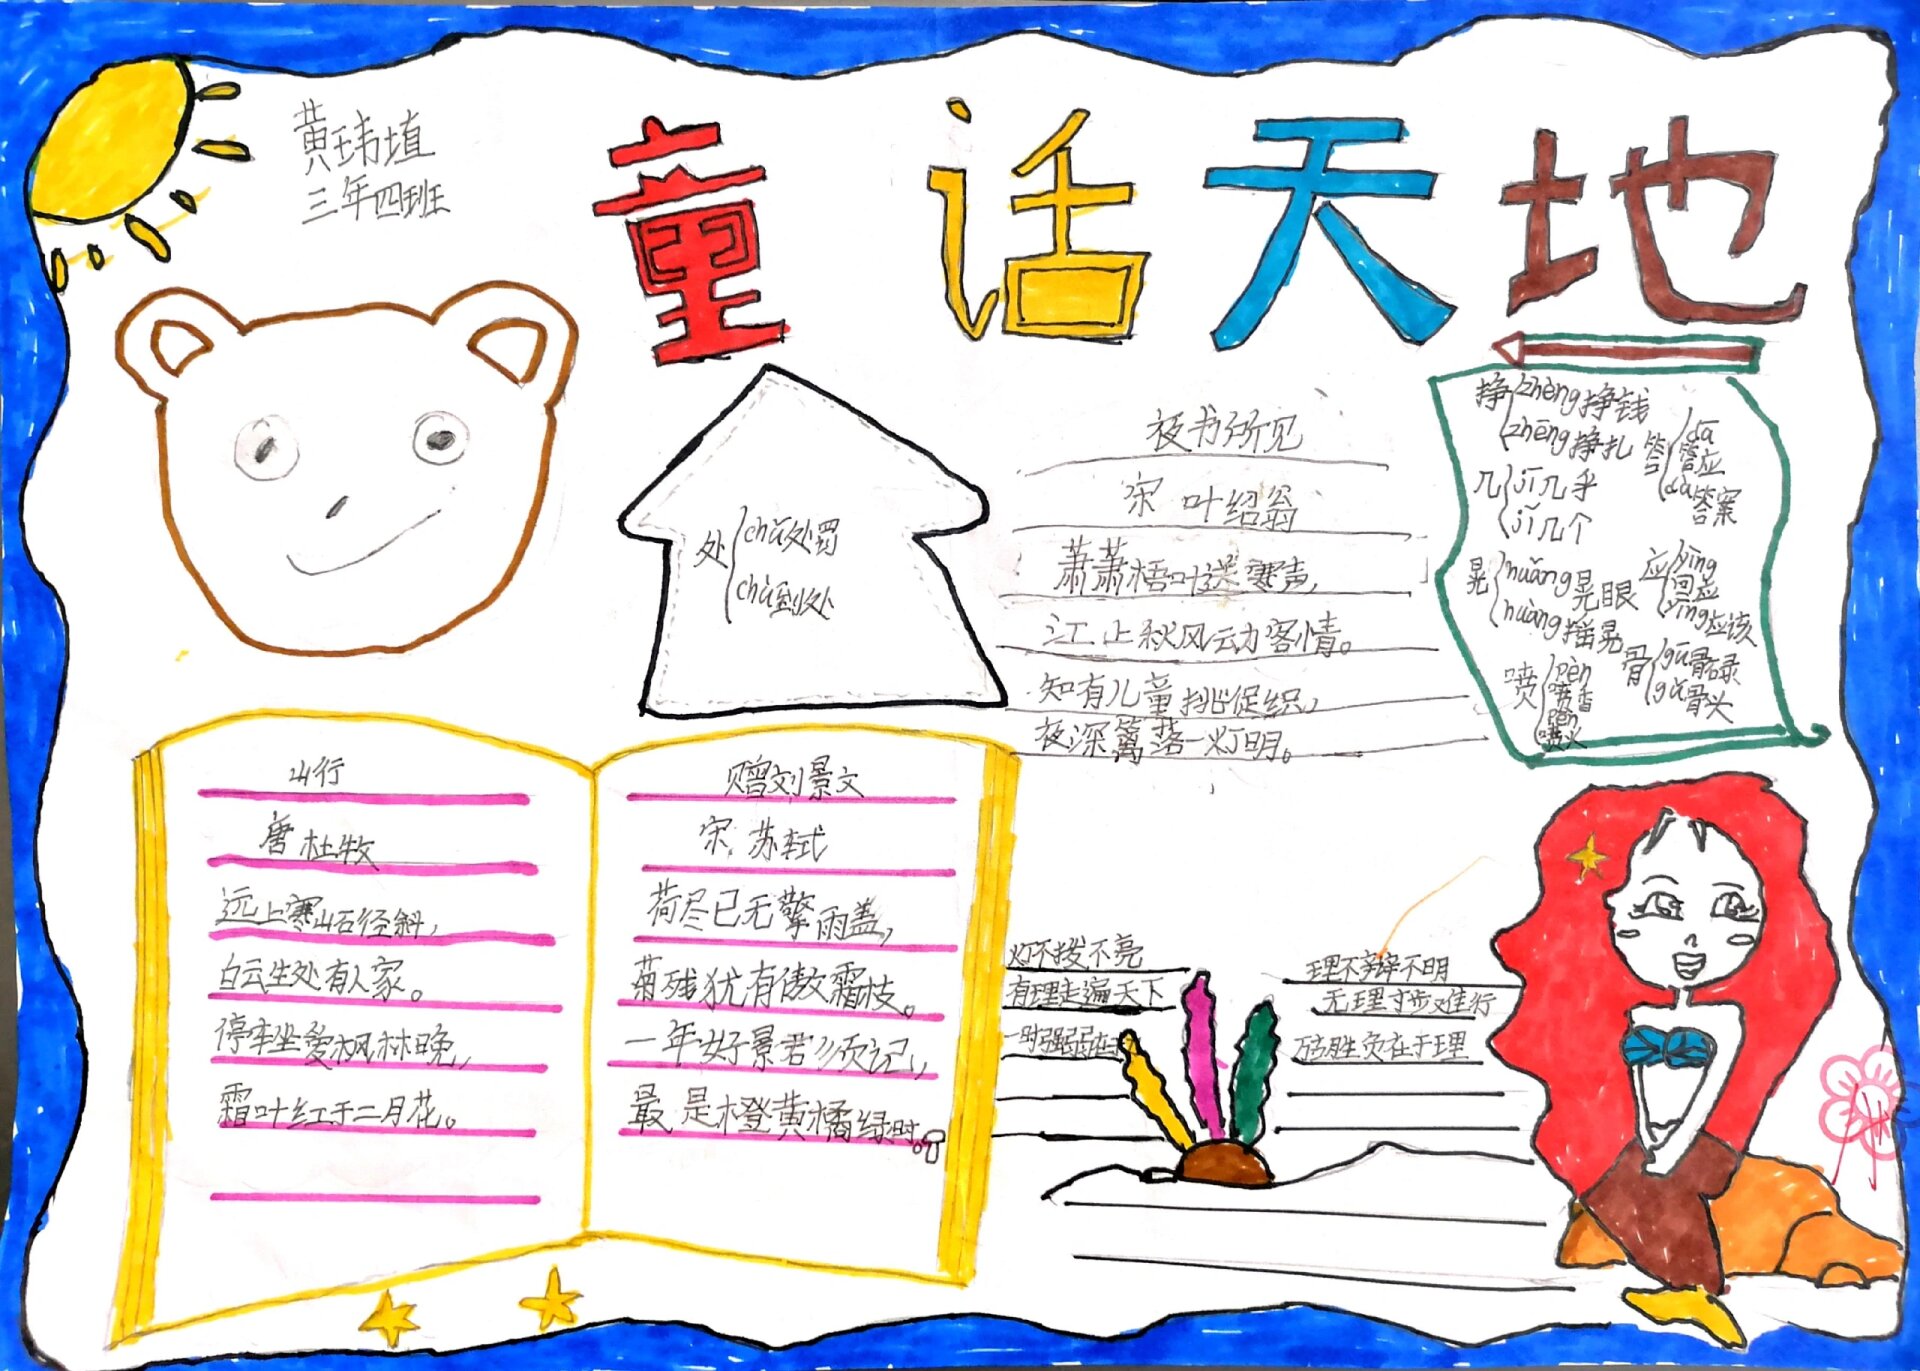 黄玮埴
三年四班
童话天地
处
chǔ处罚
chù到处
夜书所见
宋 叶绍翁
萧萧梧叶送寒声,
江上秋风动客情。
知有儿童挑促织,
夜深篱落一灯明。
挣
zhèng挣钱
zhēng挣扎
答
dā
答应
dá答案
几
jī几乎
jǐ几个
晃
huǎng晃眼
huàng摇晃
应
yīng
回应
yīng应该
喷
pèn
喷香
pēn
喷火
骨
gū骨碌
gǔ骨头
山行
唐 杜牧
远上寒山石径斜,
白云生处有人家。
停车坐爱枫林晚,
霜叶红于二月花。
赠刘景文
宋 苏轼
荷尽已无擎雨盖,
菊残犹有傲霜枝。
一年好景君须记,
最是橙黄橘绿时。
灯不拨不亮
理不辩不明
有理走遍天下
无理寸步难行
一时强弱在
胜负在于理